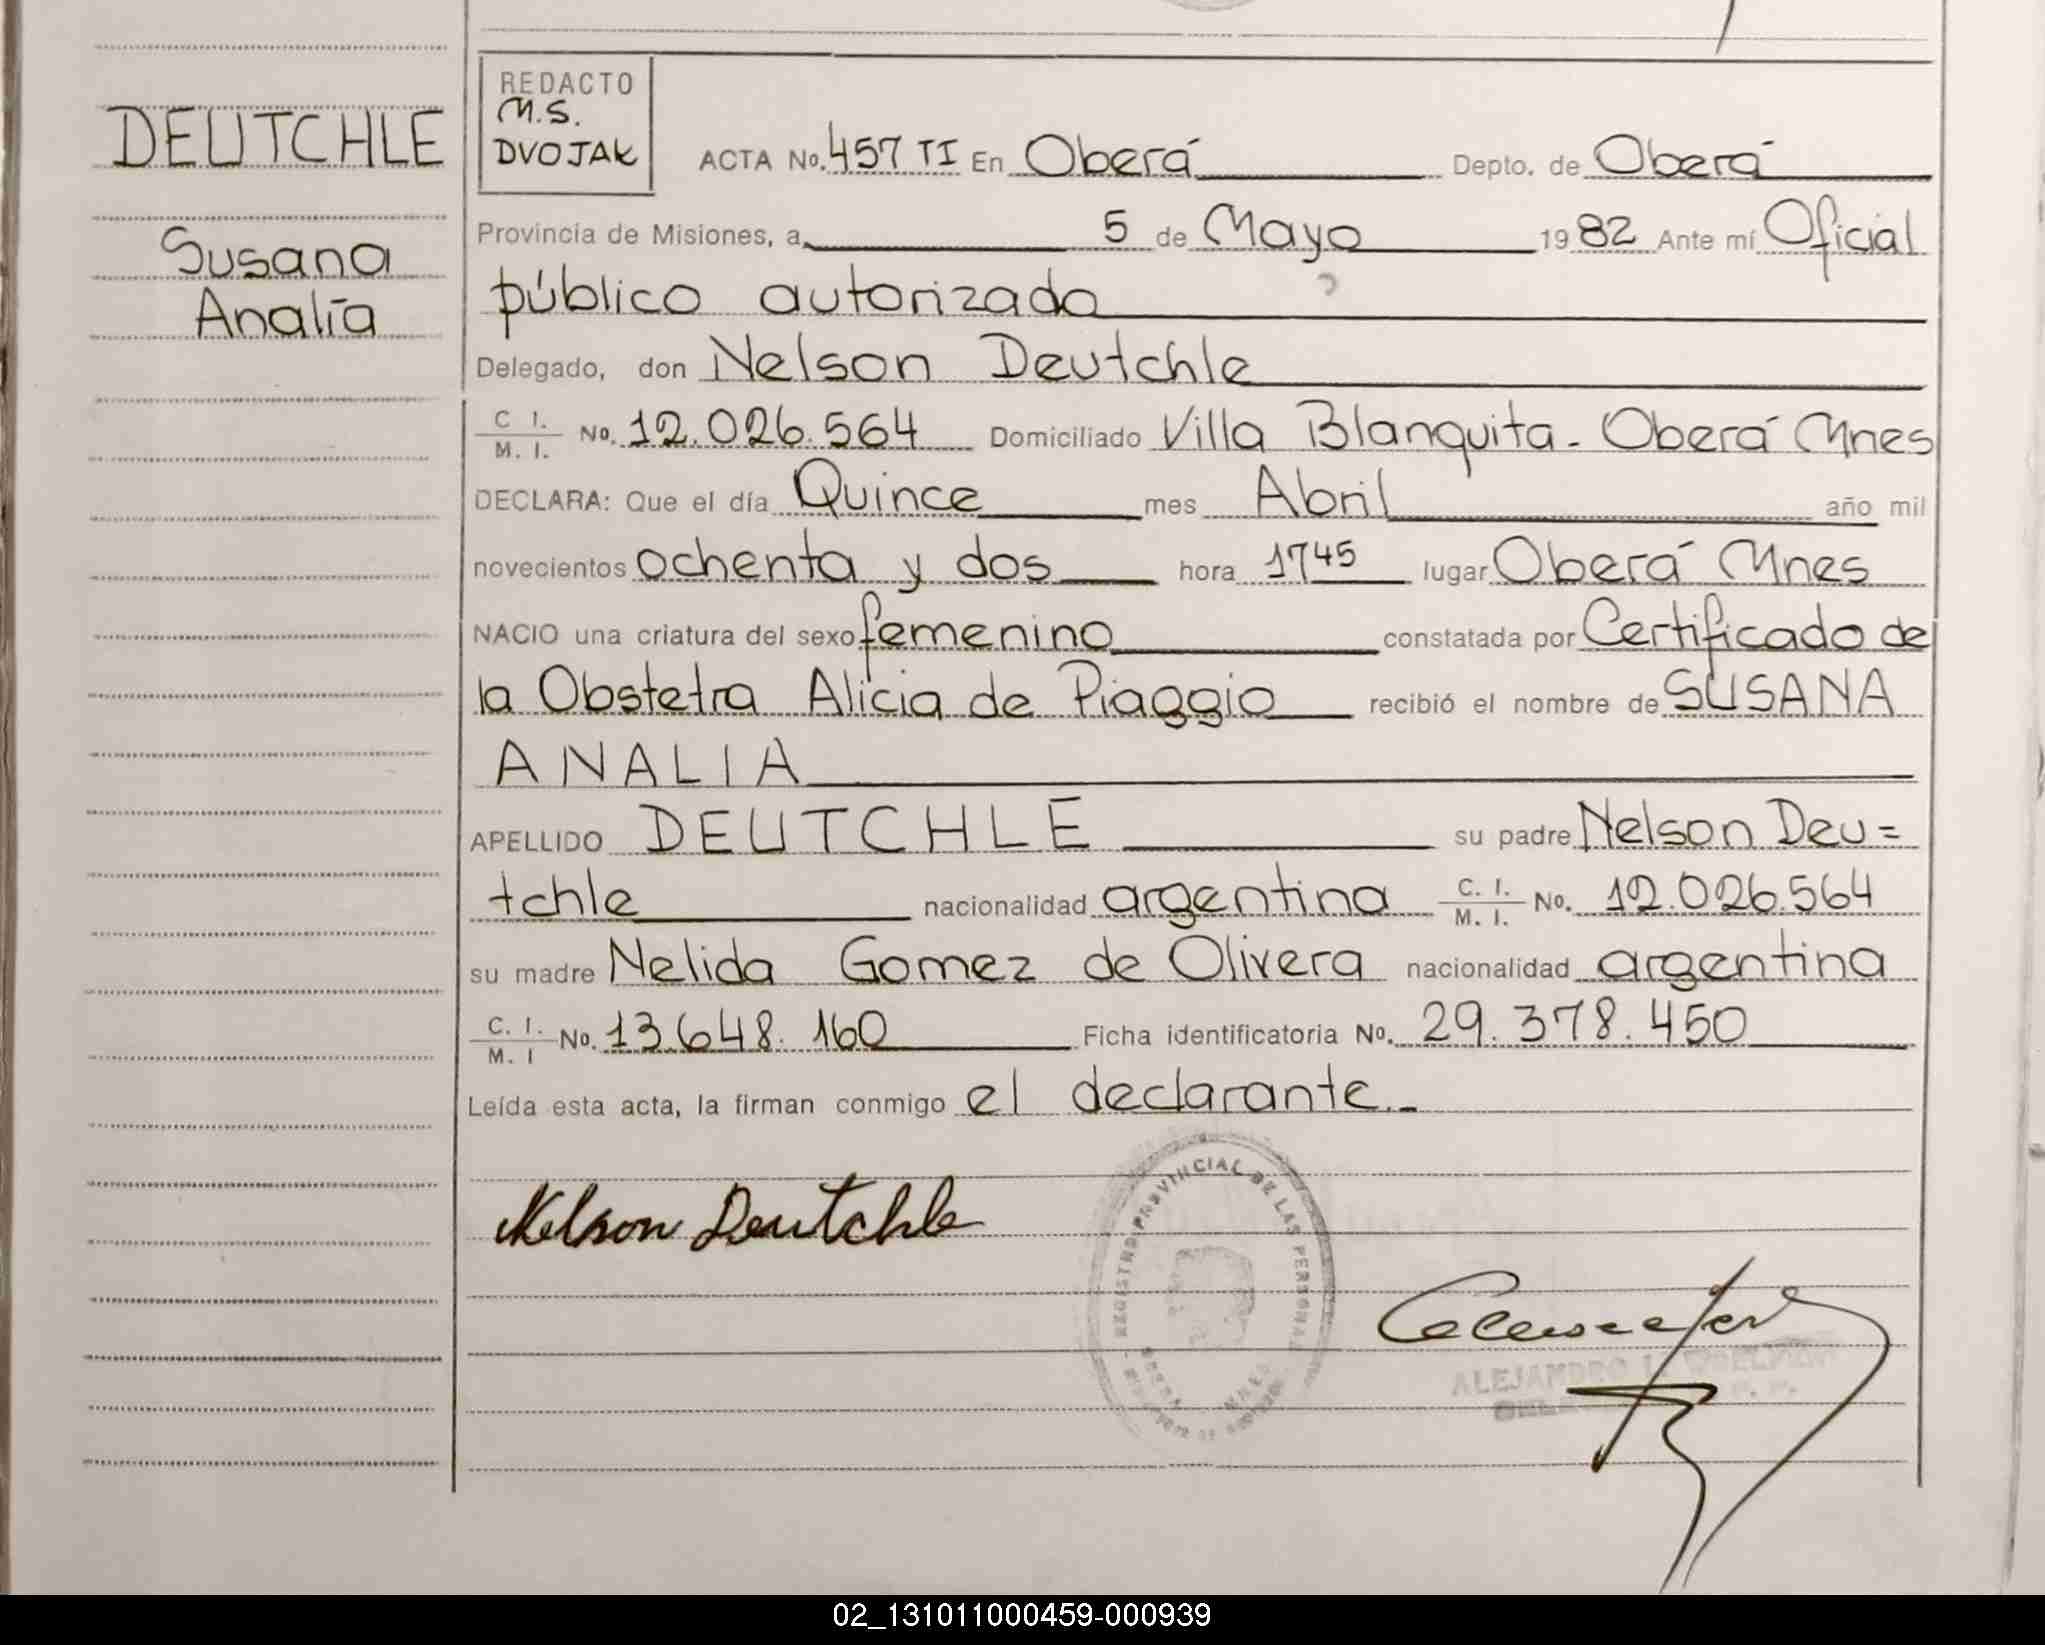 DEUTCHLE
Susana
Analía
REDACTO
M.S.
DVOJAK
ACTA No. 457 TI En Oberá Depto. de Oberá
Provincia de Misiones, a 5 de Mayo 1982 Ante mí Oficial
público autorizado
Delegado, don Nelson Deutchle
C I. / M. I. No. 12.026.564 Domiciliado Villa Blanquita - Oberá Mnes
DECLARA: Que el día Quince mes Abril año mil
novecientos ochenta y dos hora 1745 lugar Oberá Mnes
NACIO una criatura del sexo femenino constatada por Certificado de
la Obstetra Alicia de Piaggio recibió el nombre de SUSANA
ANALIA
APELLIDO DEUTCHLE su padre Nelson Deu=
tchle nacionalidad argentina C. I. / M. I. No. 12.026.564
su madre Nelida Gomez de Olivera nacionalidad argentina
C. I. / M. I No. 13.648.160 Ficha identificatoria No. 29.378.450
Leída esta acta, la firman conmigo el declarante.-
Nelson Deutchle
REGISTRO PROVINCIAL DE LAS PERSONAS
OBERA MNES
ALEJANDRO
02_131011000459-000939